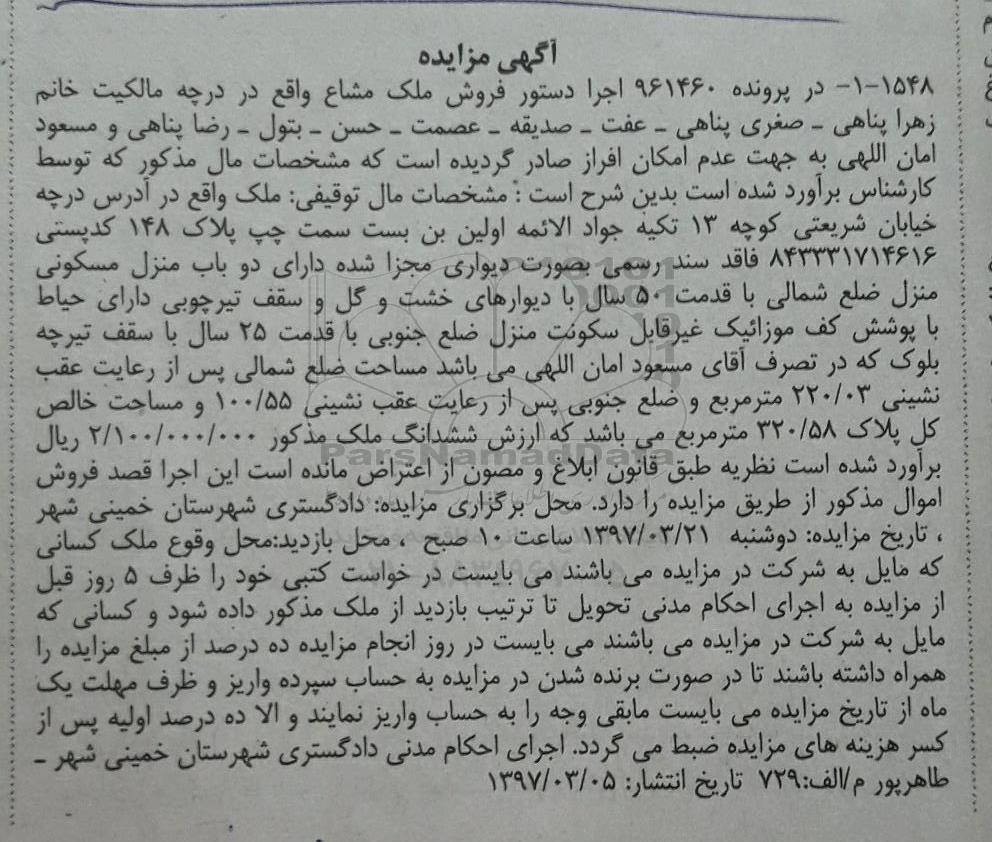 آگهی مزایده
۱۵۴۸-۱- در پرونده ۹۶۱۴۶۰ اجرا دستور فروش ملک مشاع واقع در درچه مالکیت خانم
زهرا پناهی ـ صغری پناهی ـ عفت ـ صدیقه ـ عصمت ـ حسن ـ بتول ـ رضا پناهی و مسعود
امان اللهی به جهت عدم امکان افراز صادر گردیده است که مشخصات مال مذکور که توسط
کارشناس برآورد شده است بدین شرح است : مشخصات مال توقیفی: ملک واقع در آدرس درچه
خیابان شریعتی کوچه ۱۳ تکیه جواد الائمه اولین بن بست سمت چپ پلاک ۱۴۸ کدپستی
۸۴۳۳۳۱۷۱۴۶۱۶ فاقد سند رسمی بصورت دیواری مجزا شده دارای دو باب منزل مسکونی
منزل ضلع شمالی با قدمت ۵۰ سال با دیوارهای خشت و گل و سقف تیرچوبی دارای حیاط
با پوشش کف موزائیک غیرقابل سکونت منزل ضلع جنوبی با قدمت ۲۵ سال با سقف تیرچه
بلوک که در تصرف آقای مسعود امان اللهی می باشد مساحت ضلع شمالی پس از رعایت عقب
نشینی ۲۲۰/۰۳ مترمربع و ضلع جنوبی پس از رعایت عقب نشینی ۱۰۰/۵۵ و مساحت خالص
کل پلاک ۳۲۰/۵۸ مترمربع می باشد که ارزش ششدانگ ملک مذکور ۲/۱۰۰/۰۰۰/۰۰۰ ریال
برآورد شده است نظریه طبق قانون ابلاغ و مصون از اعتراض مانده است این اجرا قصد فروش
اموال مذکور از طریق مزایده را دارد. محل برگزاری مزایده: دادگستری شهرستان خمینی شهر
، تاریخ مزایده: دوشنبه ۱۳۹۷/۰۳/۲۱ ساعت ۱۰ صبح ، محل بازدید:محل وقوع ملک کسانی
که مایل به شرکت در مزایده می باشند می بایست در خواست کتبی خود را ظرف ۵ روز قبل
از مزایده به اجرای احکام مدنی تحویل تا ترتیب بازدید از ملک مذکور داده شود و کسانی که
مایل به شرکت در مزایده می باشند می بایست در روز انجام مزایده ده درصد از مبلغ مزایده را
همراه داشته باشند تا در صورت برنده شدن در مزایده به حساب سپرده واریز و ظرف مهلت یک
ماه از تاریخ مزایده می بایست مابقی وجه را به حساب واریز نمایند و الا ده درصد اولیه پس از
کسر هزینه های مزایده ضبط می گردد. اجرای احکام مدنی دادگستری شهرستان خمینی شهر ـ
طاهرپور م/الف:۷۲۹ تاریخ انتشار: ۱۳۹۷/۰۳/۰۵
ParsNamadData